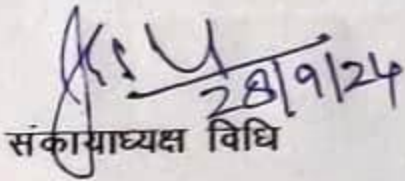 28/9/24
संकायाध्यक्ष विधि